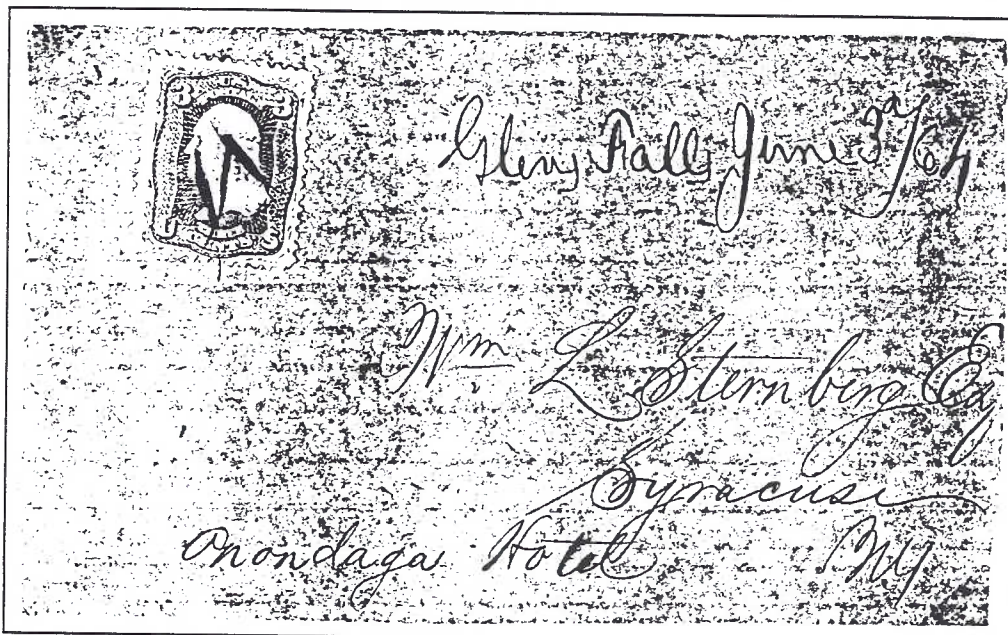 3 3
Glens Falls June 3
Wm L Sternberg Esq
Syracuse
Onondaga Hotel NY